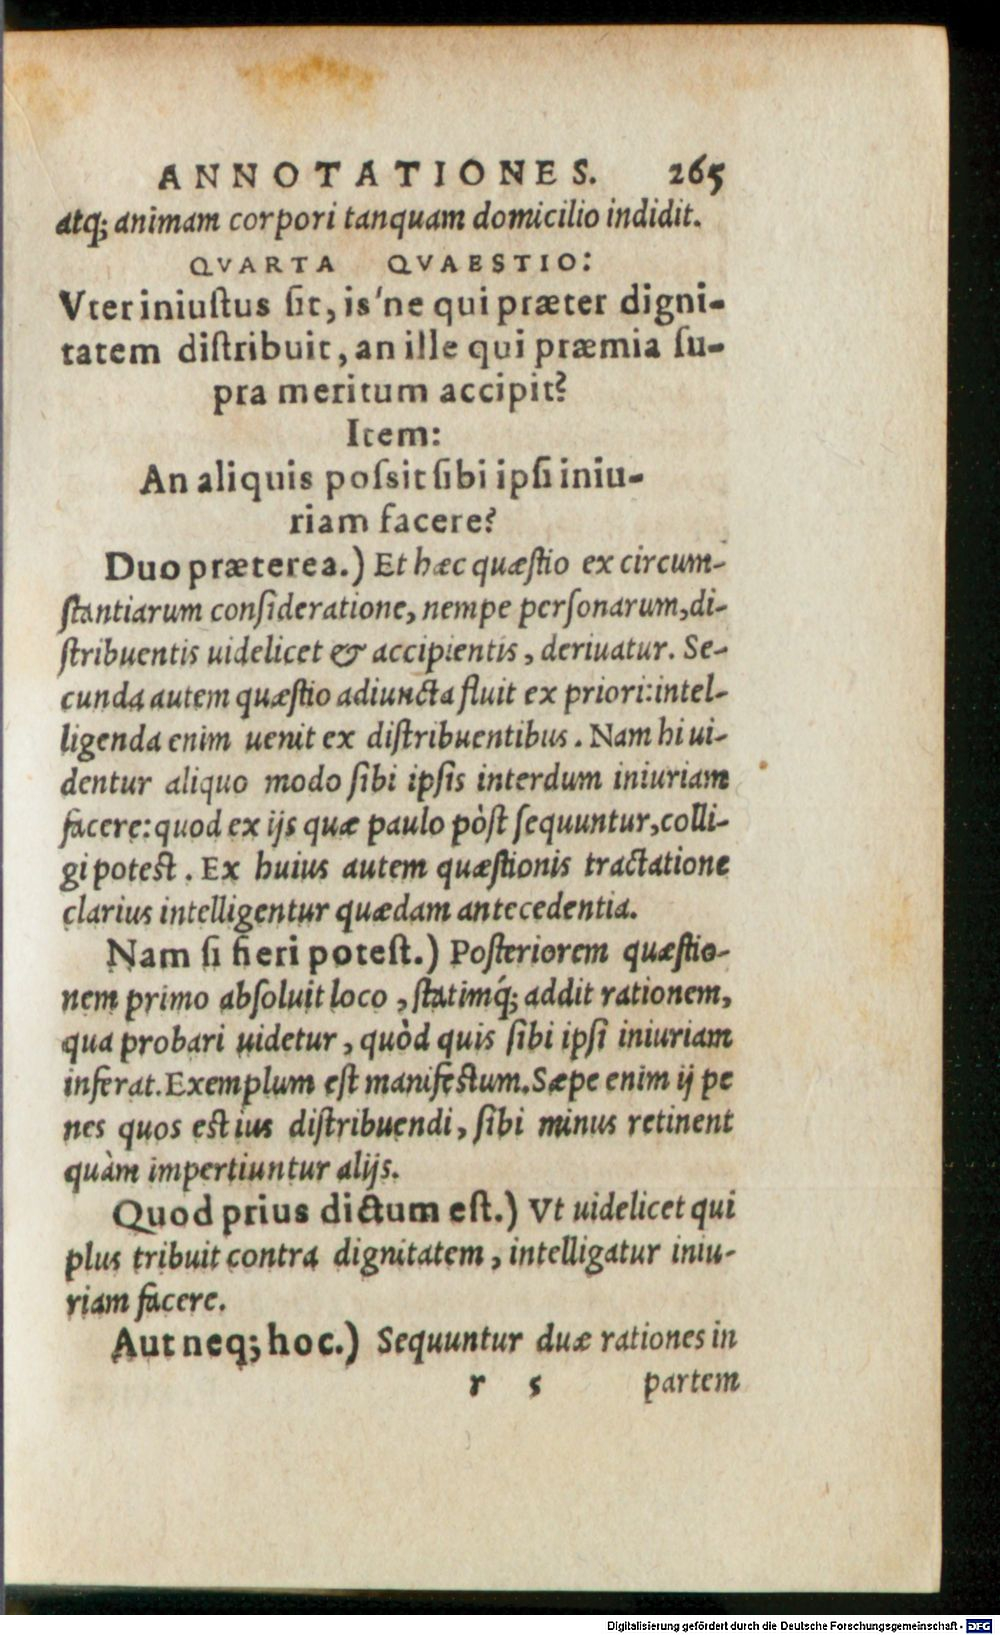 ANNOTATIONES. 265
atq; animam corpori tanquam domicilio indidit.
QVARTA QVAESTIO:
Vter iniuſtus ſit, is'ne qui præter digni-
tatem diſtribuit, an ille qui præmia ſu-
pra meritum accipit?
Item:
An aliquis poſsit ſibi ipſi iniu-
riam facere?
Duo præterea.) Et hæc quæſtio ex circum-
ſtantiarum conſideratione, nempe perſonarum, di-
ſtribuentis uidelicet & accipientis, deriuatur. Se-
cunda autem quæſtio adiuncta fluit ex priori: intel-
ligenda enim uenit ex diſtribuentibus. Nam hi ui-
dentur aliquo modo ſibi ipſis interdum iniuriam
facere: quod ex ijs quæ paulo pòſt ſequuntur, colli-
gi poteſt. Ex huius autem quæſtionis tractatione
clarius intelligentur quædam antecedentia.
Nam ſi fieri poteſt.) Poſteriorem quæſtio-
nem primo abſoluit loco, ſtatimq́; addit rationem,
qua probari uidetur, quòd quis ſibi ipſi iniuriam
inferat. Exemplum eſt manifeſtum. Sæpe enim ij pe
nes quos eſt ius diſtribuendi, ſibi minus retinent
quàm impertiuntur alijs.
Quod prius dictum eſt.) Vt uidelicet qui
plus tribuit contra dignitatem, intelligatur iniu-
riam facere.
Aut neq; hoc.) Sequuntur duæ rationes in
r 5 partem
Digitalisierung gefördert durch die Deutsche Forschungsgemeinschaft - DFG